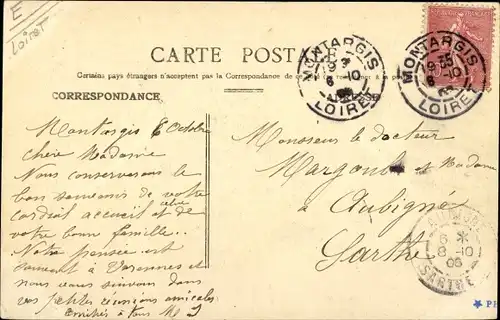 E
Loiret
CARTE POSTALE
Certains pays étrangers n'acceptent pas la Correspondance de ce
CORRESPONDANCE
MONTARGIS
6 -10
LOIRET
MONTARGIS
6 -10
LOIRET
Montargis 6 Octobre
chère Madame
Nous conservons le
bon souvenir de votre
cordial accueil et de celui
votre bonne famille..
Notre pensée est
souvent à Varennes et
nous vous suivons dans
vos petites réunions amicales
Amitiés à tous M S
Monsieur le docteur
et Madame
à Aubigné
Sarthe
6 *
8 -10
06
SARTHE